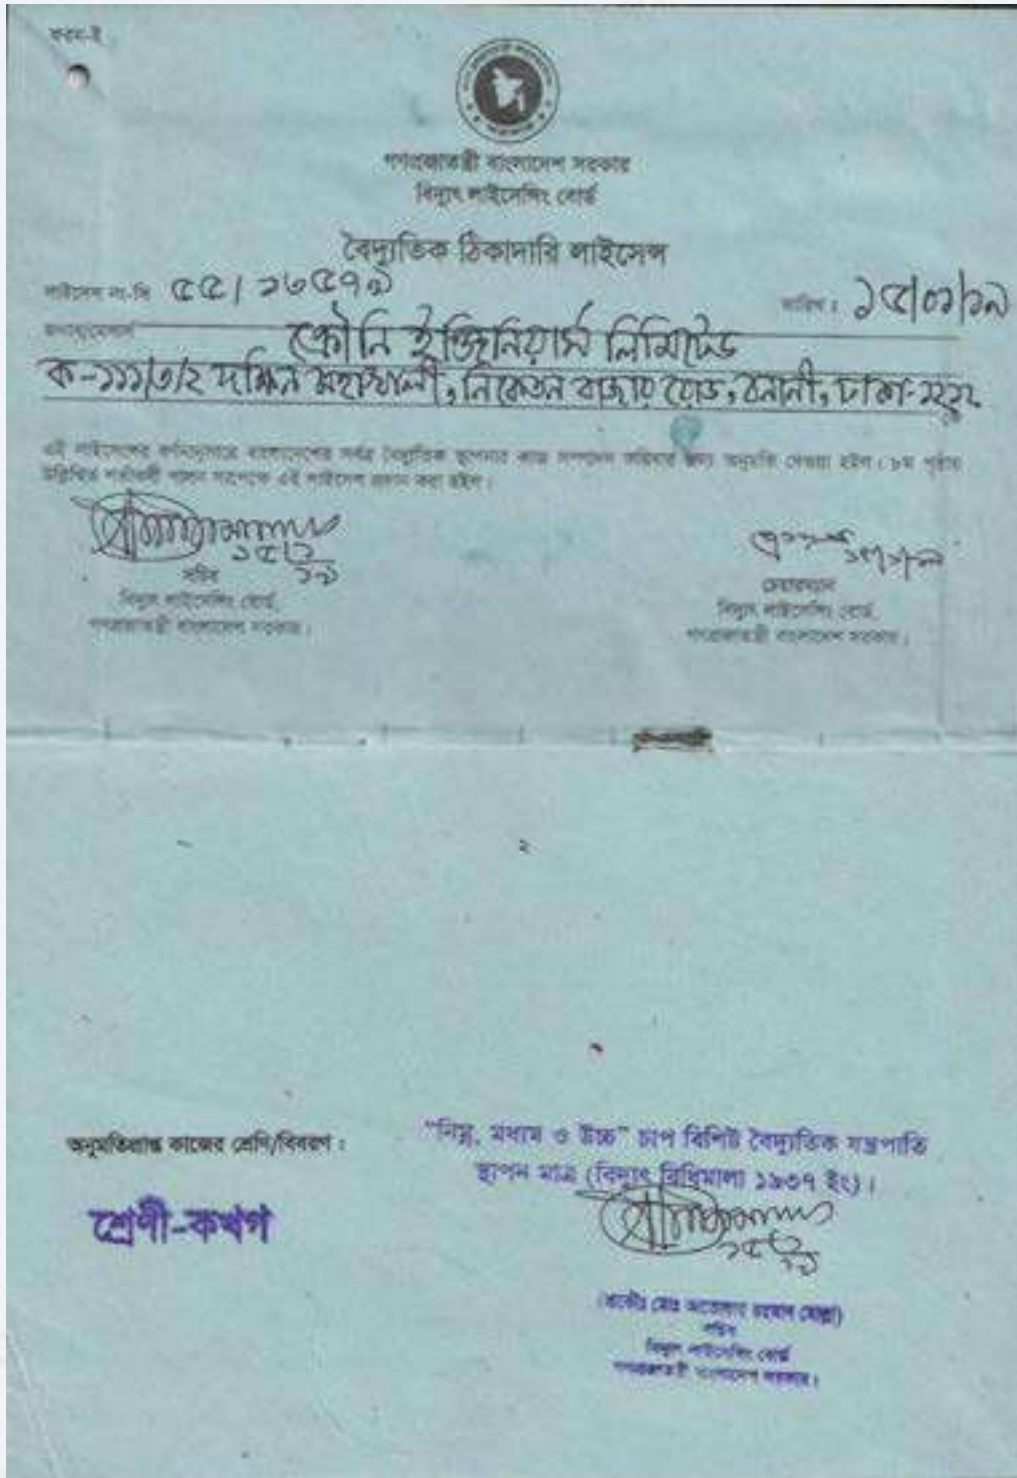 ফরম-ই
গণপ্রজাতন্ত্রী বাংলাদেশ সরকার
বিদ্যুৎ লাইসেন্সিং বোর্ড
বৈদ্যুতিক ঠিকাদারি লাইসেন্স
লাইসেন্স নং-সি ৫৫/১৬৫৭৯ তারিখ : ১৫/০১/১৯
জনাব/মেসার্স ক্রৌনি ইঞ্জিনিয়ার্স লিমিটেড
ক-১১১/৩/২ দক্ষিন মহাখালী, নিকেতন বাজার রোড, বনানী, ঢাকা-১২১২
এই লাইসেন্সের বর্ণনানুসারে বাংলাদেশের সর্বত্র বৈদ্যুতিক স্থাপনার কাজ সম্পাদন করিবার জন্য অনুমতি দেওয়া হইল। ৮ম পৃষ্ঠায়
উল্লিখিত শর্তাবলী পালন সাপেক্ষে এই লাইসেন্স প্রদান করা হইল।
সচিব চেয়ারম্যান
বিদ্যুৎ লাইসেন্সিং বোর্ড, বিদ্যুৎ লাইসেন্সিং বোর্ড,
গণপ্রজাতন্ত্রী বাংলাদেশ সরকার। গণপ্রজাতন্ত্রী বাংলাদেশ সরকার।
২
অনুমতিপ্রাপ্ত কাজের শ্রেণি/বিবরণ : "নিম্ন, মধ্যম ও উচ্চ" চাপ বিশিষ্ট বৈদ্যুতিক যন্ত্রপাতি
স্থাপন মাত্র (বিদ্যুৎ বিধিমালা ১৯৩৭ ইং)।
শ্রেণী-কখগ
সচিব
বিদ্যুৎ লাইসেন্সিং বোর্ড
গণপ্রজাতন্ত্রী বাংলাদেশ সরকার।